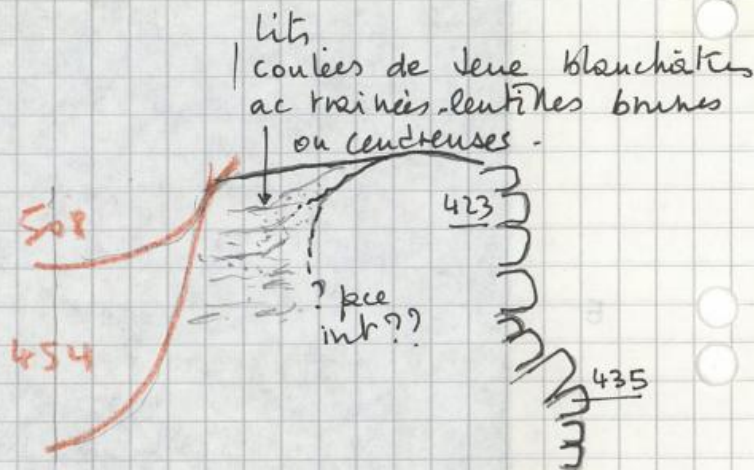 lits
coulées de terre blanchâtres
ac traînées-lentilles brunes
ou cendreuses.
423
508
? pce
int ??
454
435